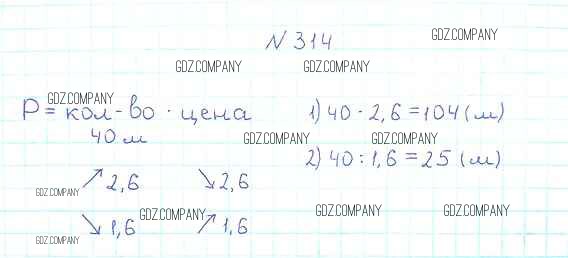 N 314
GDZ.COMPANY
GDZ.COMPANY GDZ.COMPANY
GDZ.COMPANY
P = кол-во · цена 1) 40 · 2,6 = 104 (м)
40 м GDZ.COMPANY GDZ.COMPANY
2) 40 : 1,6 = 25 (м)
↗ 2,6 ↘ 2,6
GDZ.COMPANY
GDZ.COMPANY GDZ.COMPANY GDZ.COMPANY
↘ 1,6 ↗ 1,6
GDZ.COMPANY